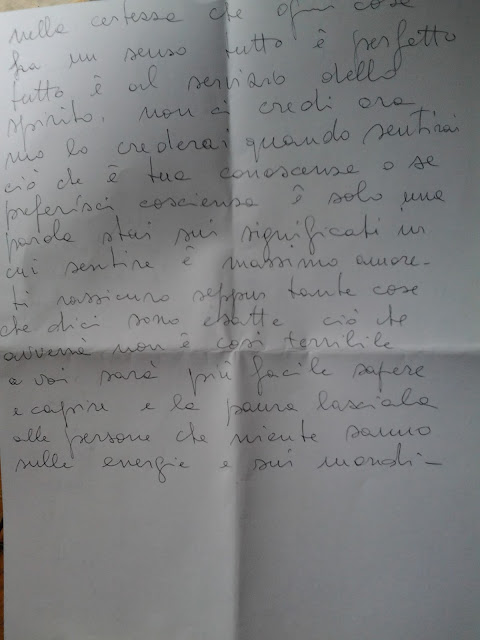 nella certezza che ogni cosa
ha un senso tutto è perfetto
tutto è al servizio dello
spirito, non ci credi ora
ma lo crederai quando sentirai
ciò che è tua conoscenza o se
preferisci coscienza è solo una
parola stai sui significati in
cui sentire è massimo amore -
ti rassicuro seppur tante cose
che dici sono esatte ciò che
avverrà non è così terribile
a voi sarà più facile sapere
e capire e la paura lasciala
alle persone che niente sanno
sulle energie e sui mondi -